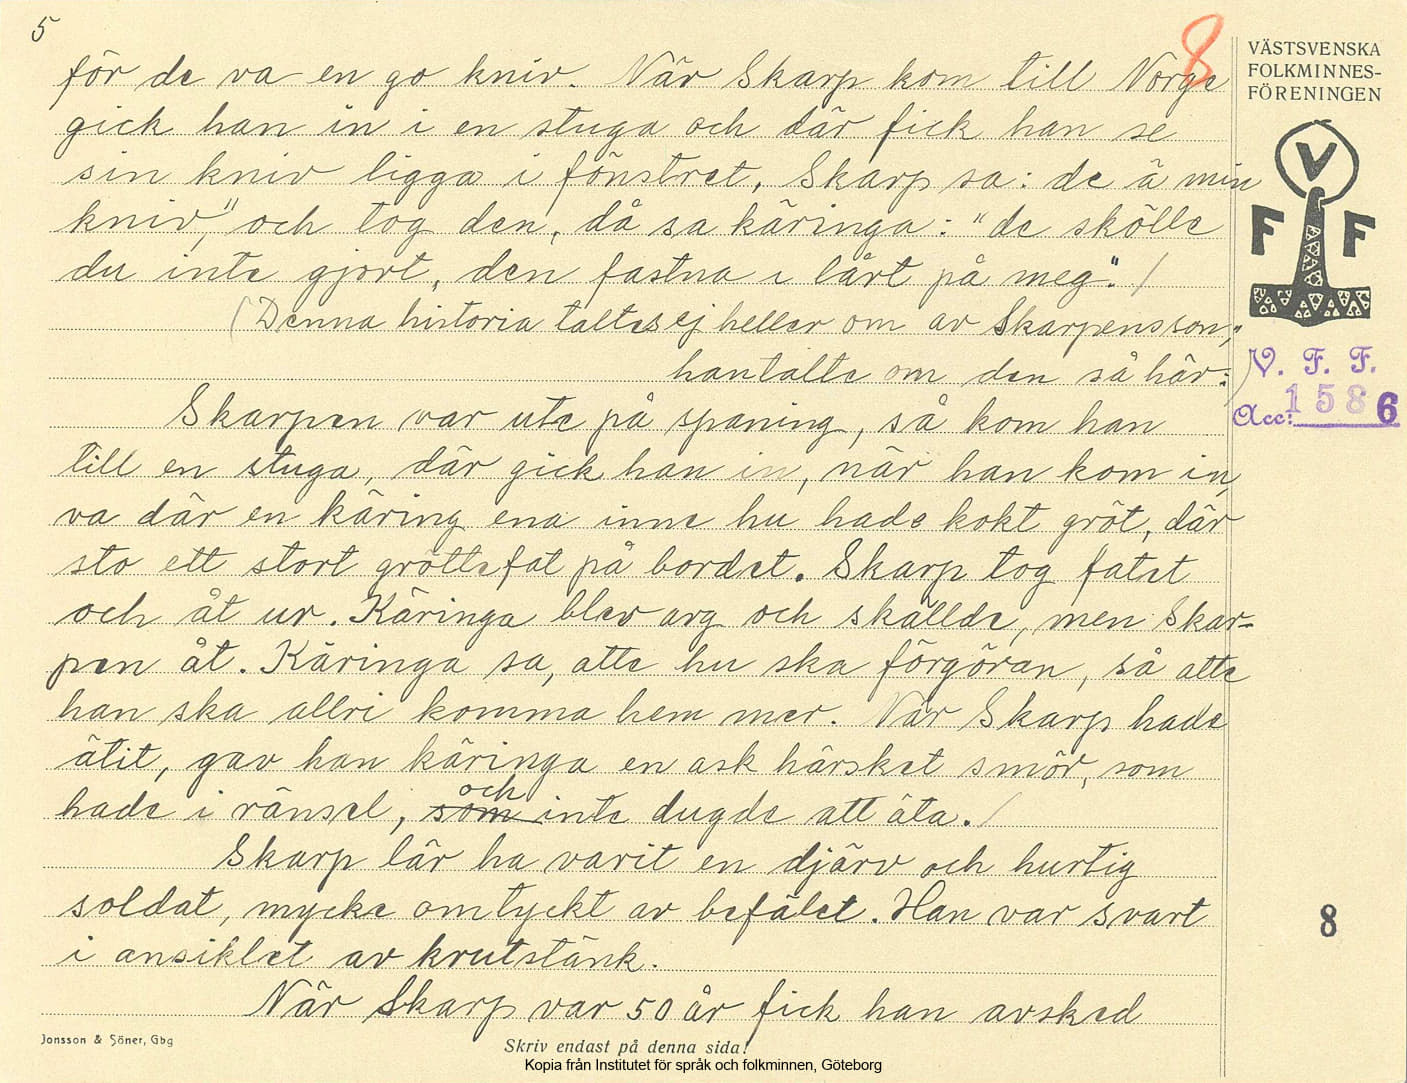 5
8
för de va en go kniv. När Skarp kom till Norge
gick han in i en stuga och där fick han se
sin kniv ligga i fönstret. Skarp sa: de ä min
kniv," och tog den, då sa käringa: "de skölle
du inte gjort, den fastna i lårt på meg". /
(Denna historia taltes ej heller om av Skarpens son,"
han talte om den så här:
Skarpen var ute på spaning, så kom han
till en stuga, där gick han in, när han kom in,
va där en käring ena inne hu hade kokt gröt, där
sto ett stort gröttefat på bordet. Skarp tog fatet
och åt ur. Käringa blev arg och skällde, men Skar-
pen åt. Käringa sa, atte hu ska förgöran, så atte
han ska allri komma hem mer. När Skarp hade
ätit, gav han käringa en ask härsket smör, som
hade i ränsel, som och inte dugde att äta. /
Skarp lär ha varit en djärv och hurtig
soldat, mycke omtyckt av befälet. Han var svart
i ansiktet av krutstänk.
När Skarp var 50 år fick han avsked
VÄSTSVENSKA
FOLKMINNES-
FÖRENINGEN
V
F F
V. F. F.
Acc: 1586
8
Jonsson & Söner, Gbg
Skriv endast på denna sida!
Kopia från Institutet för språk och folkminnen, Göteborg